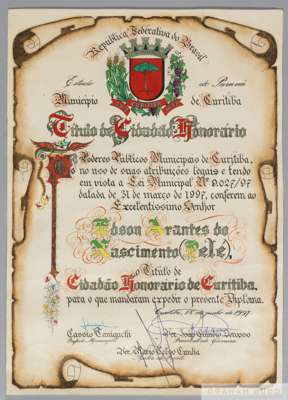 República Federativa do Brasil
Estado do Paraná
CURITIBA
Município de Curitiba
Título de Cidadão Honorário
Os Poderes Públicos Municipais de Curitiba,
no uso de suas atribuições legais e tendo
em vista a Lei Municipal Nº 9.027/97
datada de 31 de março de 1997, conferem ao
Excelentíssimo Senhor
Edson Arantes do
Nascimento (Pelé),
o Título de
Cidadão Honorário de Curitiba,
para o que mandaram expedir o presente Diploma.
Curitiba, 18 de junho de 1997
Cassio Taniguchi
Prefeito Municipal
Ver. João Cláudio Derosso
Presidente da Câmara
Ver. Mario Celso Cunha